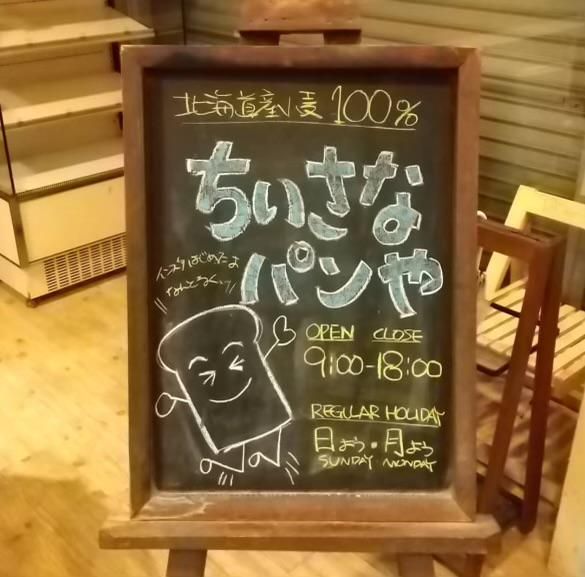 北海道産小麦 100%
ちいさな
パンや
インスタはじめたよ
OPEN CLOSE
9:00-18:00
REGULAR HOLIDAY
日よう・月よう
SUNDAY MONDAY